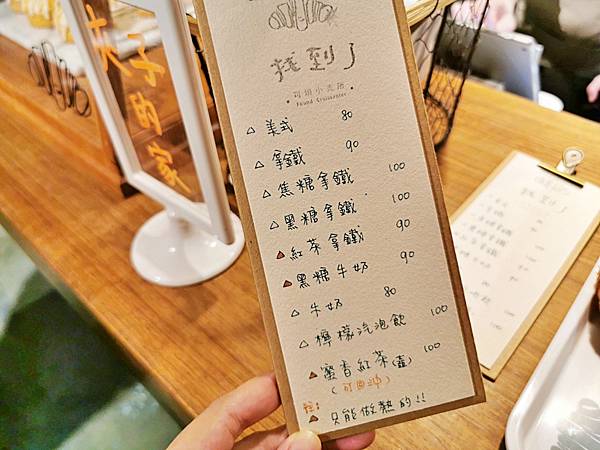 找到了
可頌小主店
Found Croissanter
△ 美式 80
△ 拿鐵 90
△ 焦糖拿鐵 100
△ 黑糖拿鐵 100
▲ 紅茶拿鐵 90
▲ 黑糖牛奶 90
△ 牛奶 80
△ 檸檬汽泡飲 100
▲ 蜜香紅茶(壺) 100
(可回沖)
註:
▲ 只能做熱的!!
夾子的家
找到了